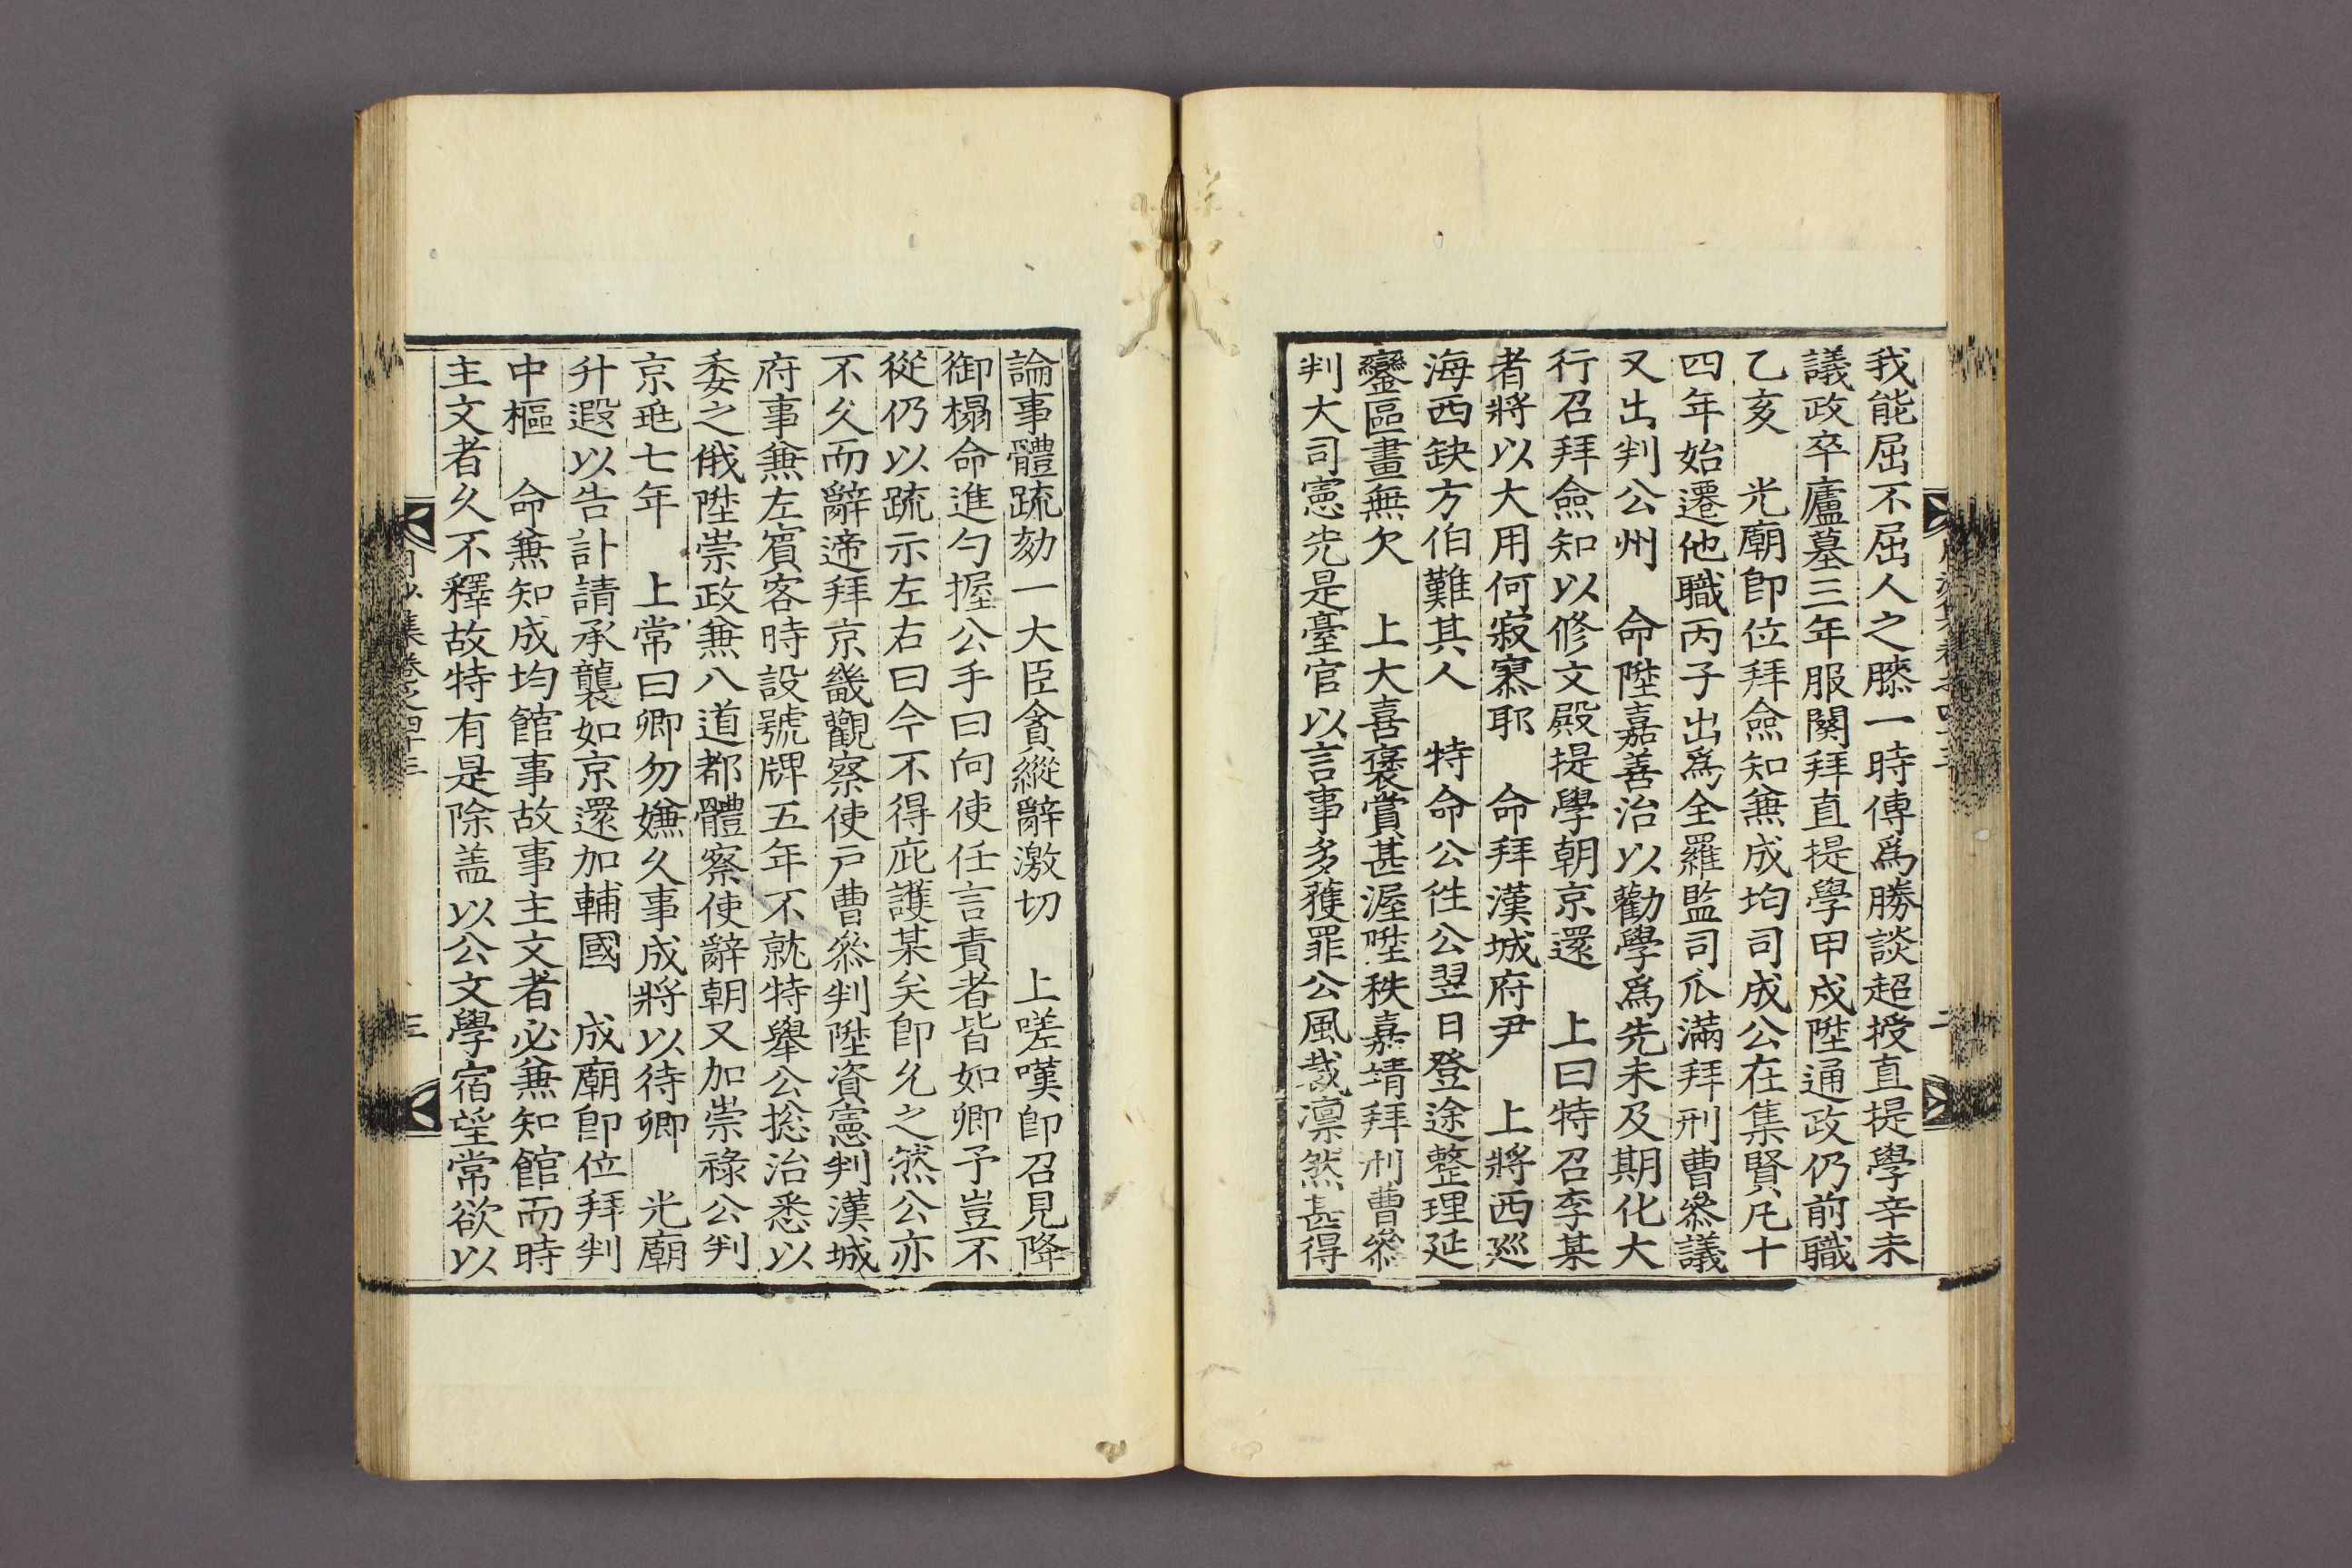 我能屈不屈人之膝一時傳爲勝談超授直提學辛未
議政卒廬墓三年服闋拜直提學甲戌陞通政仍前職
乙亥　光廟卽位拜僉知兼成均司成公在集賢凡十
四年始遷他職丙子出爲全羅監司瓜滿拜刑曹叅議
又出判公州　命陞嘉善治以勸學爲先未及期化大
行召拜僉知以修文殿提學朝京還　上曰特召李某
者將以大用何寂寞耶　命拜漢城府尹　上將西巡
海西缺方伯難其人　特命公徃公翌日登途整理延
鑾區畫無欠　上大喜褒賞甚渥陞秩嘉靖拜刑曹叅
判大司憲先是臺官以言事多獲罪公風裁凛然甚得
論事體疏劾一大臣貪縱辭激切　上嗟嘆卽召見降
御榻命進勺握公手曰向使任言責者皆如卿予豈不
從仍以疏示左右曰今不得庇護某矣卽允之然公亦
不久而辭遞拜京畿觀察使戶曹叅判陞資憲判漢城
府事兼左賓客時設號牌五年不就特擧公摠治悉以
委之俄陞崇政兼八道都體察使辭朝又加崇祿公判
京兆七年　上常曰卿勿嫌久事成將以待卿　光廟
升遐以告訃請承襲如京還加輔國　成廟卽位拜判
中樞　命兼知成均館事故事主文者必兼知館而時
主文者久不釋故特有是除盖以公文學宿望常欲以
集卷之四十三
三